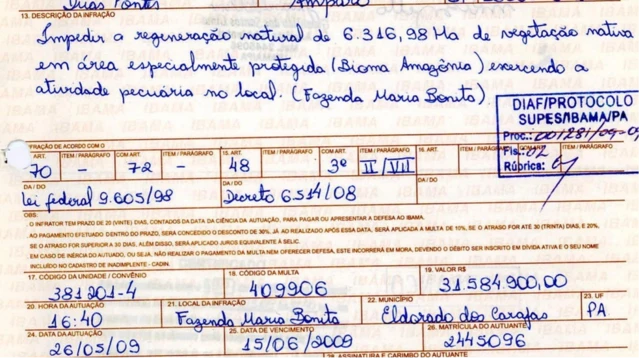 Duas Pontes Amparo
13. DESCRIÇÃO DA INFRAÇÃO
Impedir a regeneração natural de 6.346,98 Ha de vegetação nativa
em área especialmente protegida (Bioma Amazônia) exercendo a
atividade pecuária no local. (Fazenda Maria Bonita).
DIAF/PROTOCOLO
SUPES/IBAMA/PA
Proc.:
Fls.: 02
Rúbrica:
INFRAÇÃO DE ACORDO COM O
ART. ITEM / PARÁGRAFO COM ART. ITEM / PARÁGRAFO 15. ART. ITEM / PARÁGRAFO COM ART. ITEM / PARÁGRAFO 16. ART. ITEM / PARÁGRAFO
70 - 72 - 48 3º II/VII
DA / DO DA / DO DA / DO
Lei federal 9.605/98 Decreto 6.514/08
OBS:
O INFRATOR TEM PRAZO DE 20 (VINTE) DIAS, CONTADOS DA DATA DA CIÊNCIA DA AUTUAÇÃO, PARA PAGAR OU APRESENTAR A DEFESA AO IBAMA.
AO PAGAMENTO EFETUADO DENTRO DO PRAZO, SERÁ CONCEDIDO O DESCONTO DE 30%. JÁ AO REALIZADO APÓS ESSA DATA, SERÁ APLICADA A MULTA DE 10%, SE O ATRASO FOR ATÉ 30 (TRINTA) DIAS, E 20%,
SE O ATRASO FOR SUPERIOR A 30 DIAS, ALÉM DISSO, SERÁ APLICADO JUROS EQUIVALENTE À SELIC.
EM CASO DE INÉRCIA DO AUTUADO, OU SEJA, NÃO REALIZAR O PAGAMENTO DA MULTA NEM OFERECER DEFESA, ESTE INCORRERÁ EM MORA, DEVENDO O DÉBITO SER INSCRITO EM DÍVIDA ATIVA E O SEU NOME
INCLUÍDO NO CADASTRO DE INADIMPLENTE - CADIN.
17. CÓDIGO DA UNIDADE / CONVÊNIO 18. CÓDIGO DA MULTA 19. VALOR R$
381201-4 409906 31.584.900,00
20. HORA DA AUTUAÇÃO 21. LOCAL DA INFRAÇÃO 22. MUNICÍPIO 23. UF
16:40 Fazenda Maria Bonita Eldorado dos Carajás PA
24. DATA DA AUTUAÇÃO 25. DATA DE VENCIMENTO 26. MATRÍCULA DO AUTUANTE
26/05/09 15/06/2009 2445096
28. ASSINATURA E CARIMBO DO AUTUANTE